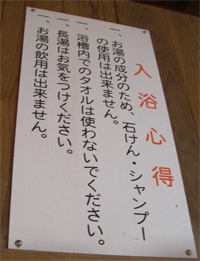 入浴心得
一、お湯の成分のため、石けん・シャンプー
の使用は出来ません。
一、浴槽内でのタオルは使わないでください。
一、長湯はお気をつけください。
一、お湯の飲用は出来ません。